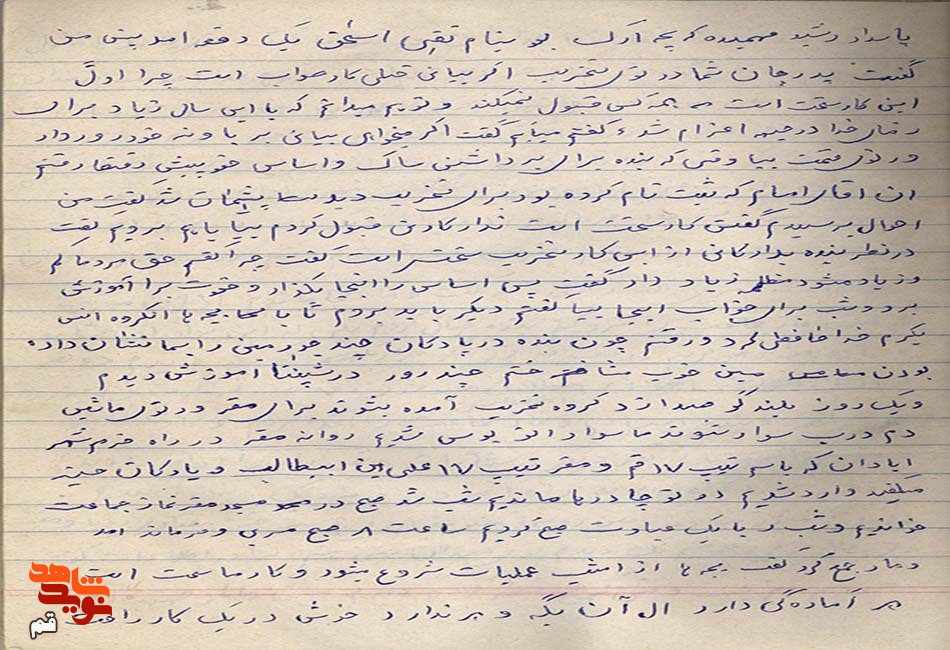 پاسدار رشید فهمیده که بچه اراک بو بنام تقی اسحق یک دفعه امد پیش من
گفت پدرجان شما در توی تخریب اگر بیائی خیلی کار صواب است چرا اول
این کار سخت است و همه کس قبول نمیکند و تو هم میدانم که با این سال زیاد برای
رضای خدا در جبهه اعزام شدی گفتم میایم گفت اگر میخواهی بیائی برو پاونه خود رو ردار
ور توی قسمت بیا وقتی که بنده برای برداشتن ساک واساسی خو پیش رفقها رفتم
ان اقای امام که ثبت نام کرده بود برای تخریب دیدم پشیمان شد گفت من
احوال پرسیدم گفتن کار سخت است ندار کار من قبول کردم بیا باهم برویم گفت
در نظر بنده بداد کانی از این کار تخریب سختر است گفت چرا گفتم حق مردم کم
وزیاد میشود مظلمه زیاد دارد گفت پس اساسی را اینجا بگذار و خوت برا آموزش
برو و شب برای خواب اینجا بیا گفتم دیگر باید بروم تا با بچه ها انگروه انس
بگیرم خدا حافظی کرد و رفتم چون بنده در پادگان چند جور مین را بما نشان داده
بودن مین خوب شناختم چند روز در شپنتا آموزش دیدم
ویک روز بلند گو صدا زد گروه تخریب آمده بشوند برای مقر ور توی ماشین
دم درب سوار شوند ما سوار اتو بوس شدیم روانه مقر در راه خرم شهر
ابادان که باسم تیپ ۱۷ قم و مقر تیپ ۱۷ علی ابن ابیطالب و پادگان
میگفتند وارد شدیم در تو چادرها ماندیم شب شد صبح در مسجد مقر نماز جماعت
خواندیم و شب را با یک عبادت صبح کردیم ساعت ۸ صبح مربی و فرمانده امد
و مارا جمع کرد گفت بچه ها از امشب عملیات شروع میشود و کار ما سخت است
هر آماده گی دارد ال آن بگه و هر ندارد خودش در یک کار راحت
نوید شاهد
قم